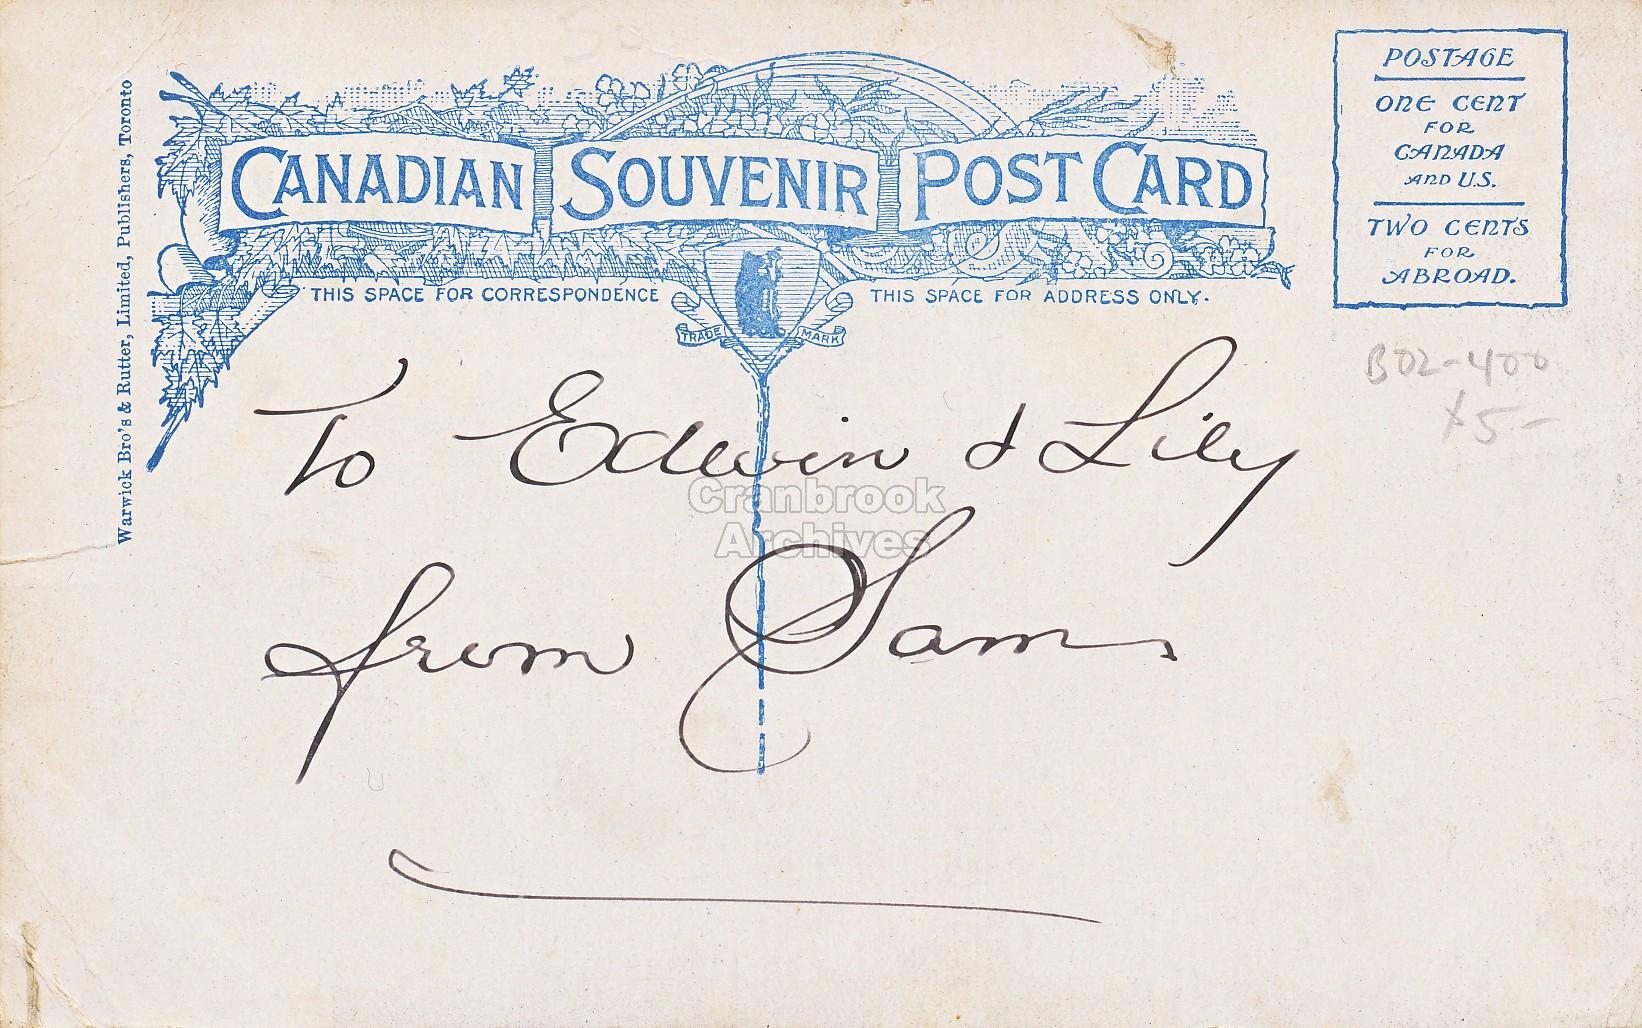 CANADIAN SOUVENIR POST CARD
THIS SPACE FOR CORRESPONDENCE
THIS SPACE FOR ADDRESS ONLY.
TRADE MARK
Warwick Bro's & Rutter, Limited, Publishers, Toronto
POSTAGE
ONE CENT
FOR
CANADA
AND U.S.
TWO CENTS
FOR
ABROAD.
B02-400
x5-
To Edwin & Lily
from Sam.
Cranbrook
Archives